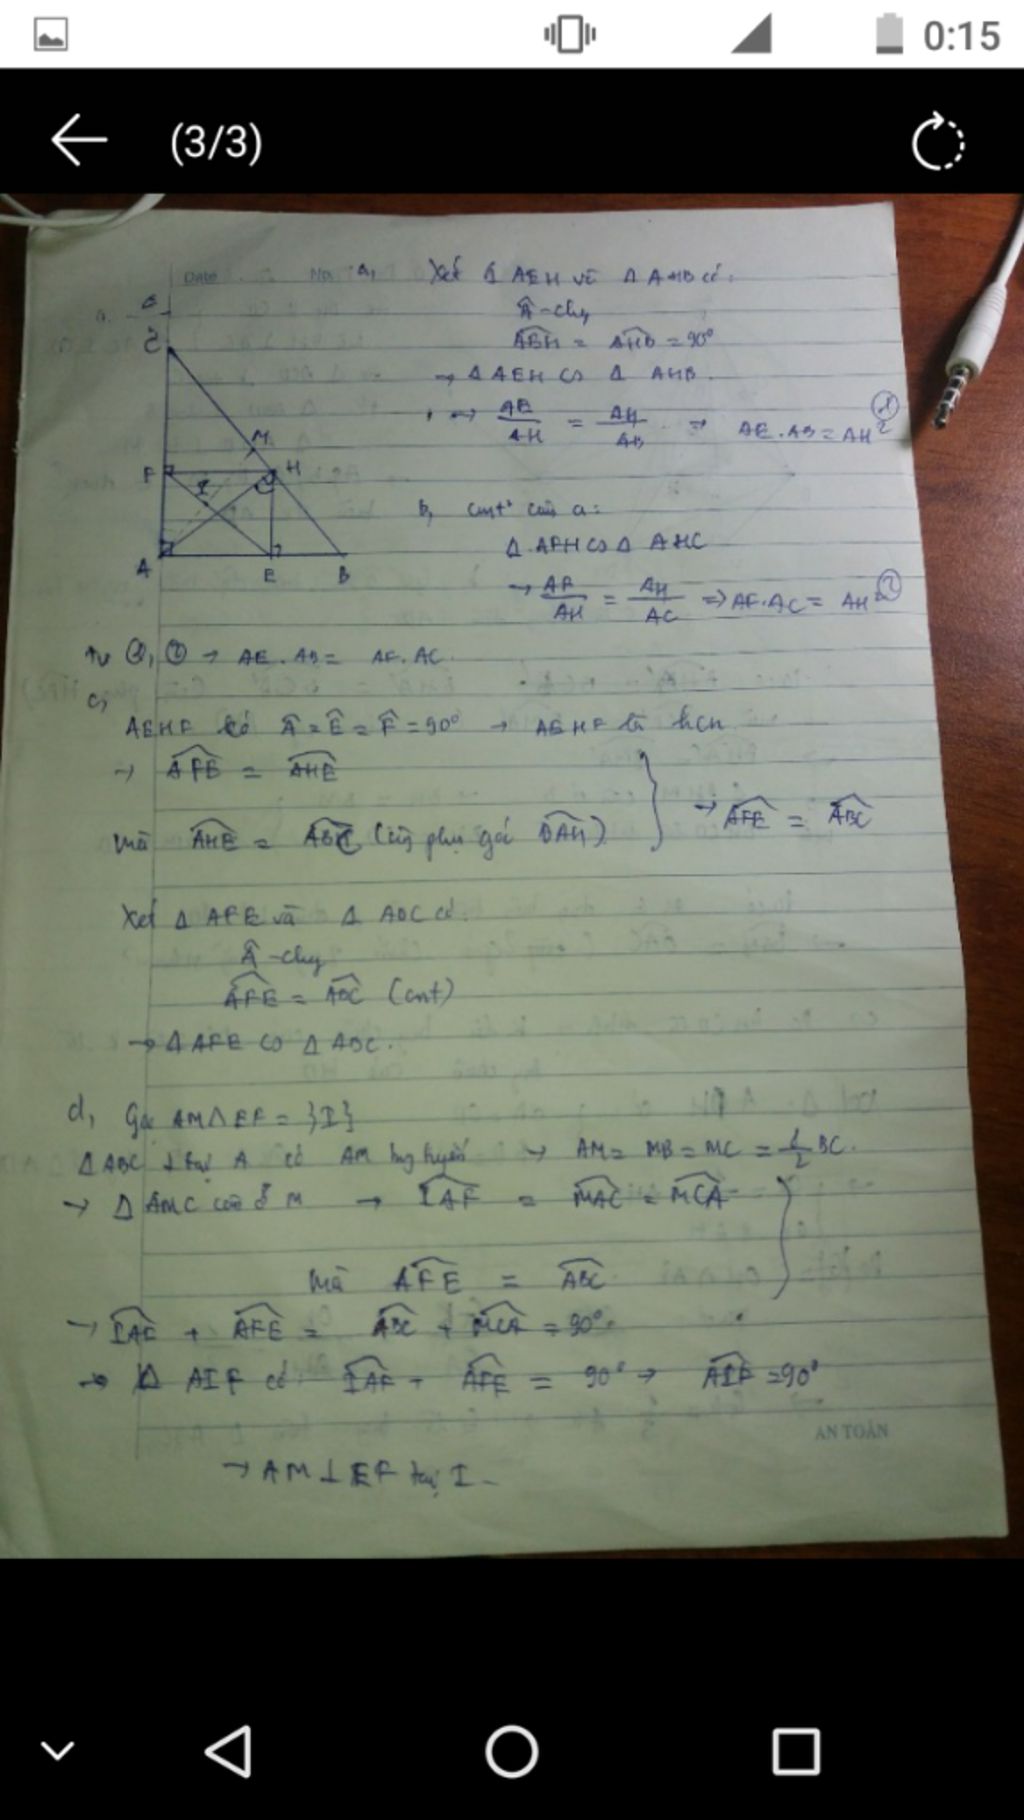 0:15
(3/3)
Date No. a, Xét Δ AEH và Δ AHB có:
Â - chg
AEH = AHB = 90°
→ Δ AEH ∽ Δ AHB.
→ AE/AH = AH/AB ⇒ AE.AB = AH² ①
C
M
F H
I
A E B
b, cmt² câu a:
Δ AFH ∽ Δ AHC
→ AF/AH = AH/AC ⇒ AF.AC = AH² ②
Từ ①, ② → AE.AB = AF.AC.
c,
AEHF có Â = Ê = F̂ = 90° → AEHF là hcn
→ AFE = AHE
mà AHE = ABC (cùng phụ góc BAH) } → AFE = ABC
Xét Δ AFE và Δ ABC có
Â - chg
AFE = ABC (cmt)
→ Δ AFE ∽ Δ ABC.
d, Gọi AM ∩ EF = {I}
Δ ABC ⊥ tại A có AM trg tuyến → AM = MB = MC = 1/2 BC.
→ Δ AMC cân ở M → IAF = MAC = MCA
mà AFE = ABC }
→ IAF + AFE = ABC + MCA = 90°.
→ Δ AIF có IAF + AFE = 90° → AIF = 90°
AN TOÀN
→ AM ⊥ EF tại I